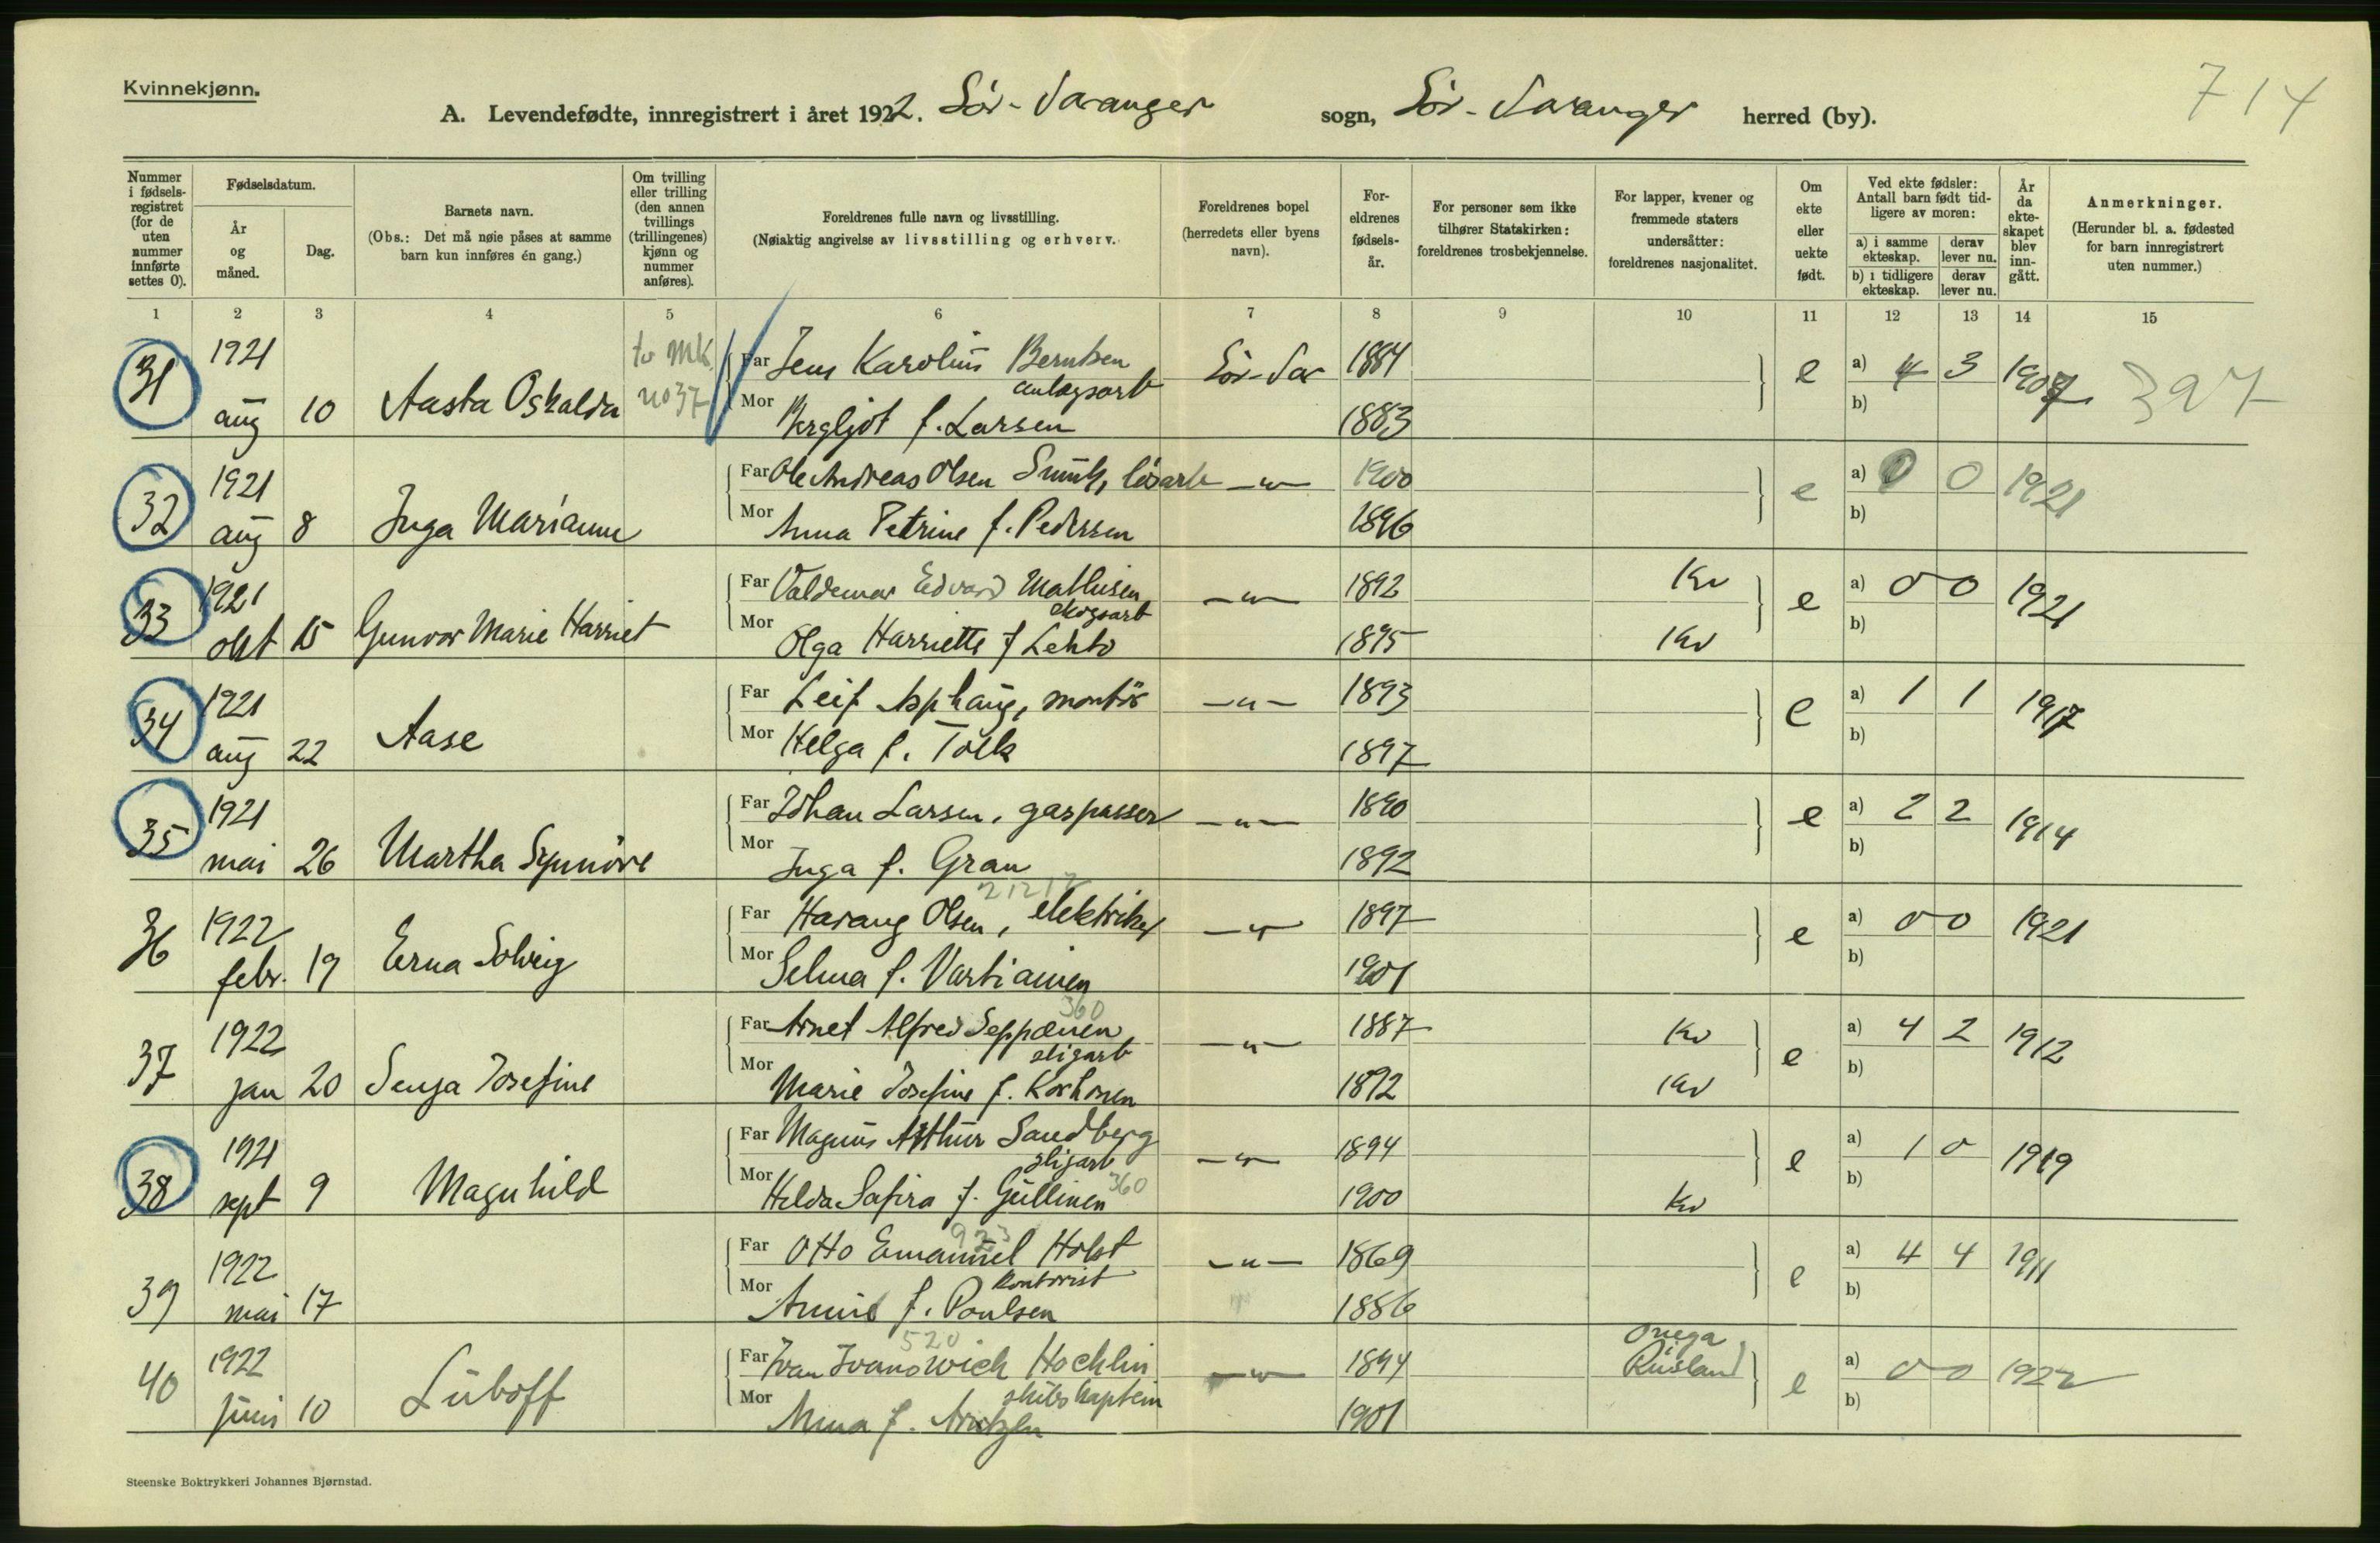 Kvinnekjønn.
714
A. Levendefødte, innregistrert i året 1922. Sør-Varanger sogn, Sør-Varanger herred (by).
Nummer i fødsels-registret (for de uten nummer innførte settes 0).
Fødselsdatum.
År og måned.
Dag.
Barnets navn.
(Obs.: Det må nøie påses at samme barn kun innføres én gang.)
Om tvilling eller trilling (den annen tvillings (trillingenes) kjønn og nummer anføres).
Foreldrenes fulle navn og livsstilling.
(Nøiaktig angivelse av livsstilling og erhverv.
Foreldrenes bopel (herredets eller byens navn).
For-eldrenes fødsels-år.
For personer som ikke tilhører Statskirken: foreldrenes trosbekjennelse.
For lapper, kvener og fremmede staters undersåtter: foreldrenes nasjonalitet.
Om ekte eller uekte født.
Ved ekte fødsler: Antall barn født tid-ligere av moren:
a) i samme ekteskap.
derav lever nu.
b) i tidligere ekteskap.
derav lever nu.
År da ekte-skapet blev inn-gått.
Anmerkninger.
(Herunder bl. a. fødested for barn innregistrert uten nummer.)
1 2 3 4 5 6 7 8 9 10 11 12 13 14 15
31 1921 aug 10 Aasta Oskalda tv Mk no 37
Far Jens Karolius Berntsen anlagsarb Sör-Var 1884 e a) 4 3 1907 397
Mor Bergljot f. Larsen 1883 b)
32 1921 aug 8 Inga Marianne
Far Ole Andreas Olsen løsarb —"— 1900 e a) 0 0 1921
Mor Anna Petrine f. Pedersen 1896 b)
33 1921 okt 15 Gunvor Marie Harriet
Far Valdemar Edvard Mathisen skogsarb —"— 1892 Kv e a) 0 0 1921
Mor Olga Harriette f Lehto 1895 Kv b)
34 1921 aug 22 Aase
Far Leif Asphaug, montör —"— 1893 e a) 1 1 1917
Mor Helga f. 1897 b)
35 1921 mai 26 Martha Synnöve
Far Johan Larsen, gaspasser —"— 1890 e a) 2 2 1914
Mor Inga f. Gran 1892 b)
36 1922 febr. 19 Erna Solveig
21212
Far Harang Olsen, elektriker —"— 1897 e a) 0 0 1921
Mor Selma f. Vartiainen 1901 b)
37 1922 jan 20 Senja Josefine
360
Far Arnet Alfred Seppænen sligarb —"— 1887 Kv e a) 4 2 1912
Mor Marie Josefine f. Korhonen 1892 Kv b)
38 1921 sept 9 Magnhild
Far Magnus Arthur Sandberg sligarb —"— 1894 e a) 1 0 1919
Mor Hilda Safira f. Gullinen 360 1900 Kv b)
39 1922 mai 17
923
Far Otto Emanuel Holst kontorist —"— 1869 e a) 4 4 1911
Mor Annie f. Poulsen 1886 b)
40 1922 juni 10 Luboff
520
Far Ivan Ivanowich Hochlin skibskaptein —"— 1894 Onega Rusland e a) 0 0 1922
Mor Anna f. 1901 b)
Steenske Boktrykkeri Johannes Bjørnstad.